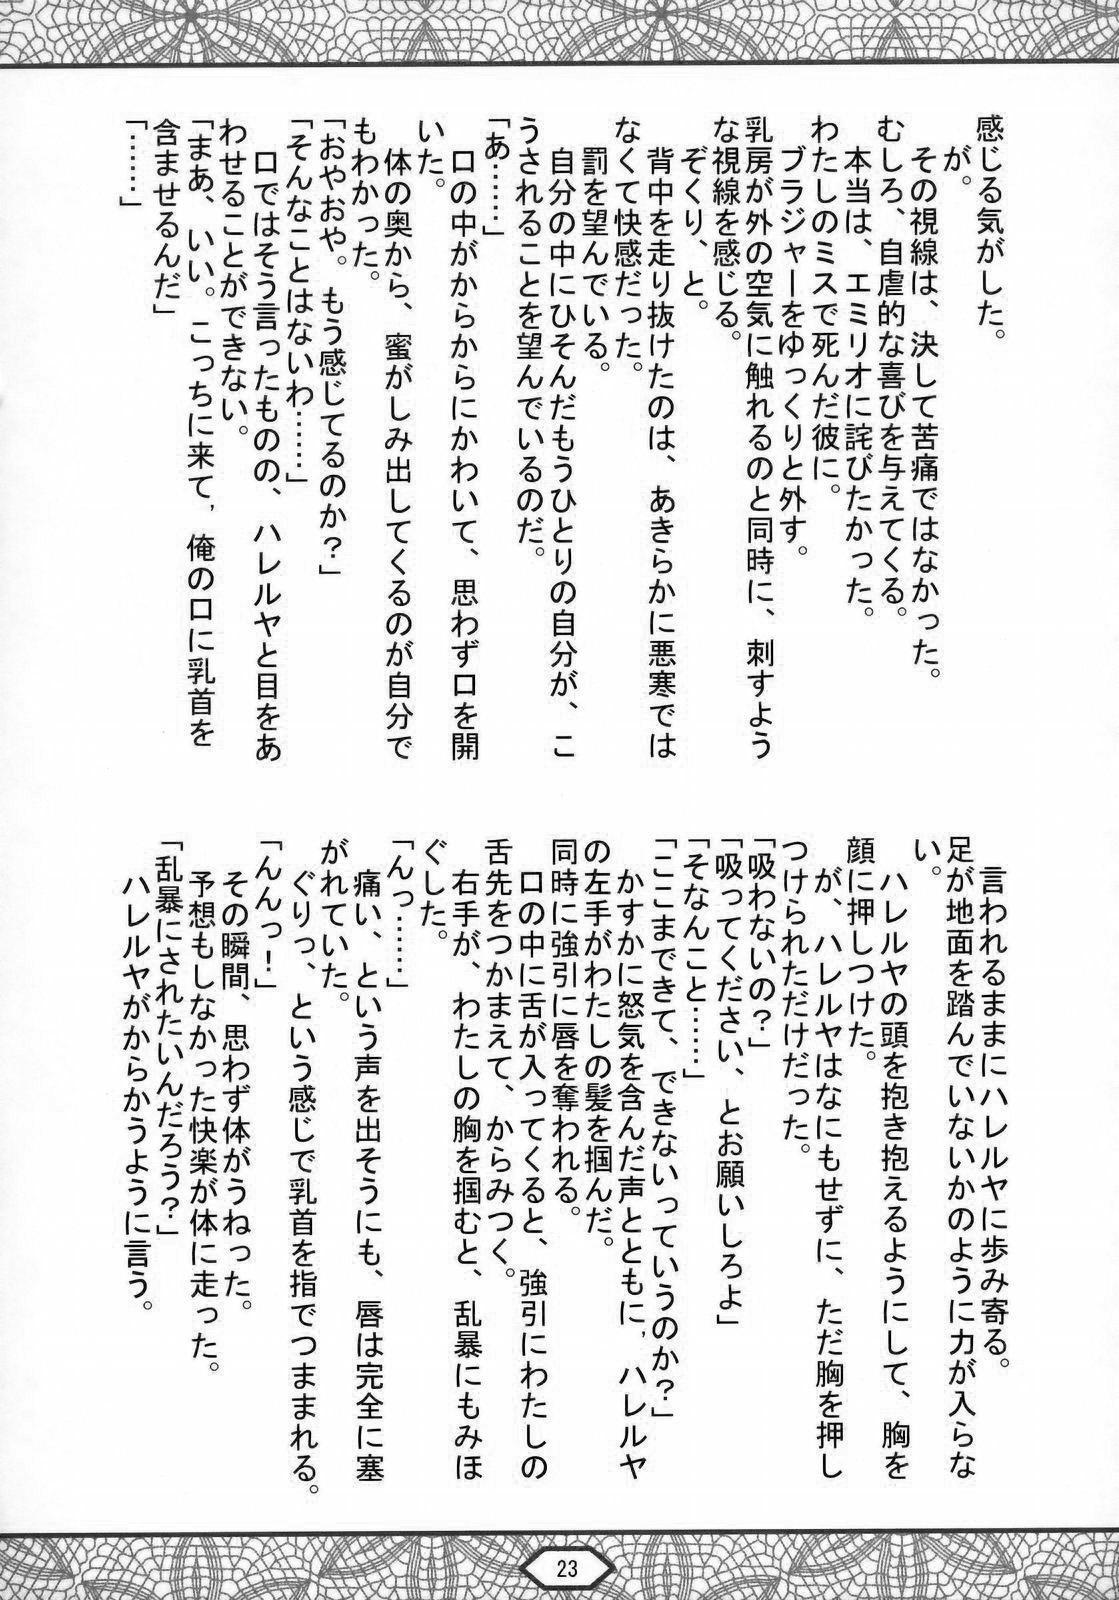 感じる気がした。
が。
その視線は、決して苦痛ではなかった。
むしろ、自虐的な喜びを与えてくる。
本当は、エミリオに詫びたかった。
わたしのミスで死んだ彼に。
ブラジャーをゆっくりと外す。
乳房が外の空気に触れるのと同時に、刺すよう
な視線を感じる。
ぞくり、と。
背中を走り抜けたのは、あきらかに悪寒では
なくて快感だった。
罰を望んでいる。
自分の中にひそんだもうひとりの自分が、こ
うされることを望んでいるのだ。
「あ……」
口の中がからからにかわいて、思わず口を開
いた。
体の奥から、蜜がしみ出してくるのが自分で
もわかった。
「おやおや。もう感じてるのか？」
「そんなことはないわ……」
口ではそう言ったものの、ハレルヤと目をあ
わせることができない。
「まあ、いい。こっちに来て、俺の口に乳首を
含ませるんだ」
「……」
言われるままにハレルヤに歩み寄る。
足が地面を踏んでいないかのように力が入らな
い。
ハレルヤの頭を抱き抱えるようにして、胸を
顔に押しつけた。
が、ハレルヤはなにもせずに、ただ胸を押し
つけられただけだった。
「吸わないの？」
「吸ってください、とお願いしろよ」
「そなんこと……」
「ここまできて、できないっていうのか？」
かすかに怒気を含んだ声とともに、ハレルヤ
の左手がわたしの髪を掴んだ。
同時に強引に唇を奪われる。
口の中に舌が入ってくると、強引にわたしの
舌先をつかまえて、からみつく。
右手が、わたしの胸を掴むと、乱暴にもみほ
ぐした。
「んっ……」
痛い、という声を出そうにも、唇は完全に塞
がれていた。
ぐりっ、という感じで乳首を指でつままれる。
「んんっ！」
その瞬間、思わず体がうねった。
予想もしなかった快楽が体に走った。
「乱暴にされたいんだろう？」
ハレルヤがからかうように言う。
23